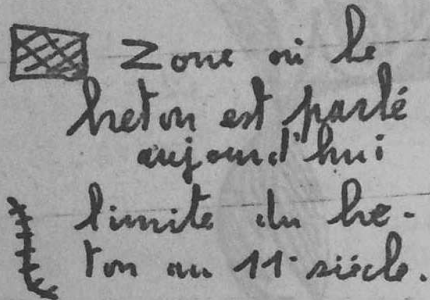 Zone où le
breton est parlé
aujourd'hui
limite du bre-
ton au 11e siècle.